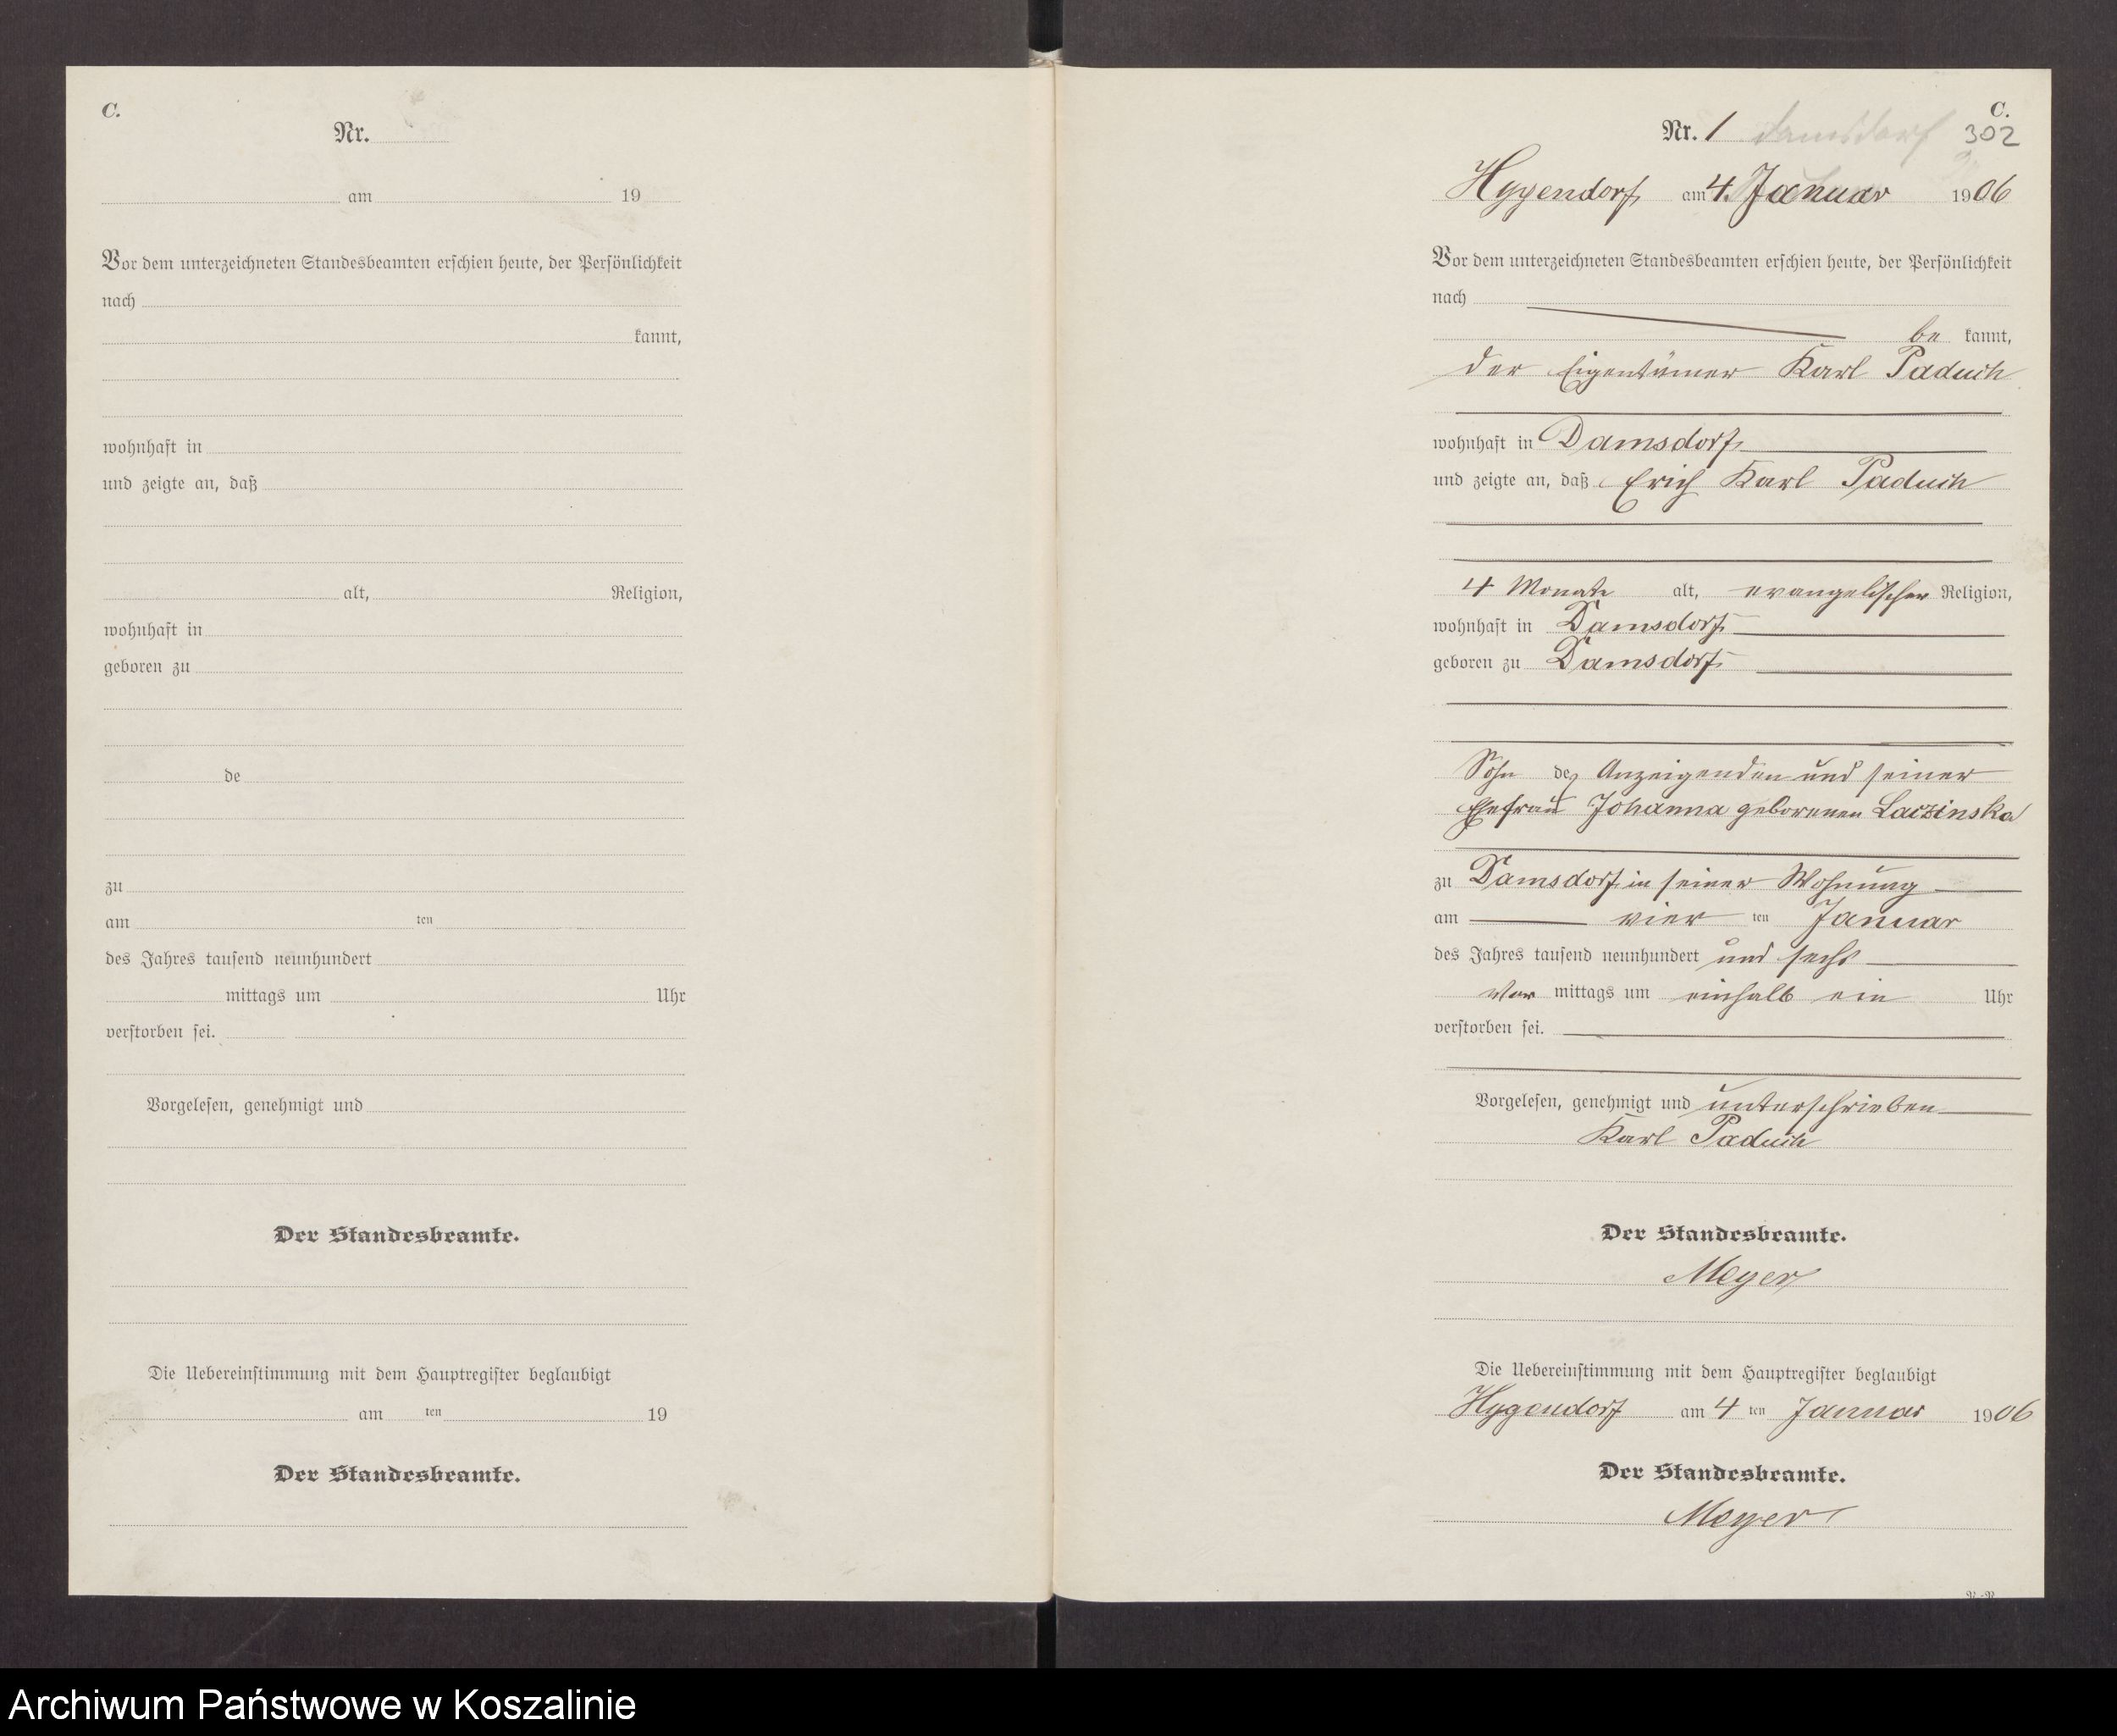 C.
Nr.
am 19
Vor dem unterzeichneten Standesbeamten erschien heute, der Persönlichkeit
nach
kannt,
wohnhaft in
und zeigte an, daß
alt, Religion,
wohnhaft in
geboren zu
de
zu
am ten
des Jahres tausend neunhundert
mittags um Uhr
verstorben sei.
Vorgelesen, genehmigt und
Der Standesbeamte.
Die Uebereinstimmung mit dem Hauptregister beglaubigt
am ten 19
Der Standesbeamte.
C.
Nr. 1 Damsdorf 302
Hygendorf am 4. Januar 1906
Vor dem unterzeichneten Standesbeamten erschien heute, der Persönlichkeit
nach
be kannt,
der Eigentümer Karl Paduch
wohnhaft in Damsdorf
und zeigte an, daß Erich Karl Paduch
4 Monate alt, evangelischer Religion,
wohnhaft in Damsdorf
geboren zu Damsdorf
Sohn des Anzeigenden und seiner
Ehefrau Johanna geborenen Laczinska
zu Damsdorf in seiner Wohnung
am vier ten Januar
des Jahres tausend neunhundert und sechs
Vor mittags um einhalb ein Uhr
verstorben sei.
Vorgelesen, genehmigt und unterschrieben
Karl Paduch
Der Standesbeamte.
Meyer
Die Uebereinstimmung mit dem Hauptregister beglaubigt
Hygendorf am 4 ten Januar 1906
Der Standesbeamte.
Meyer
Archiwum Państwowe w Koszalinie